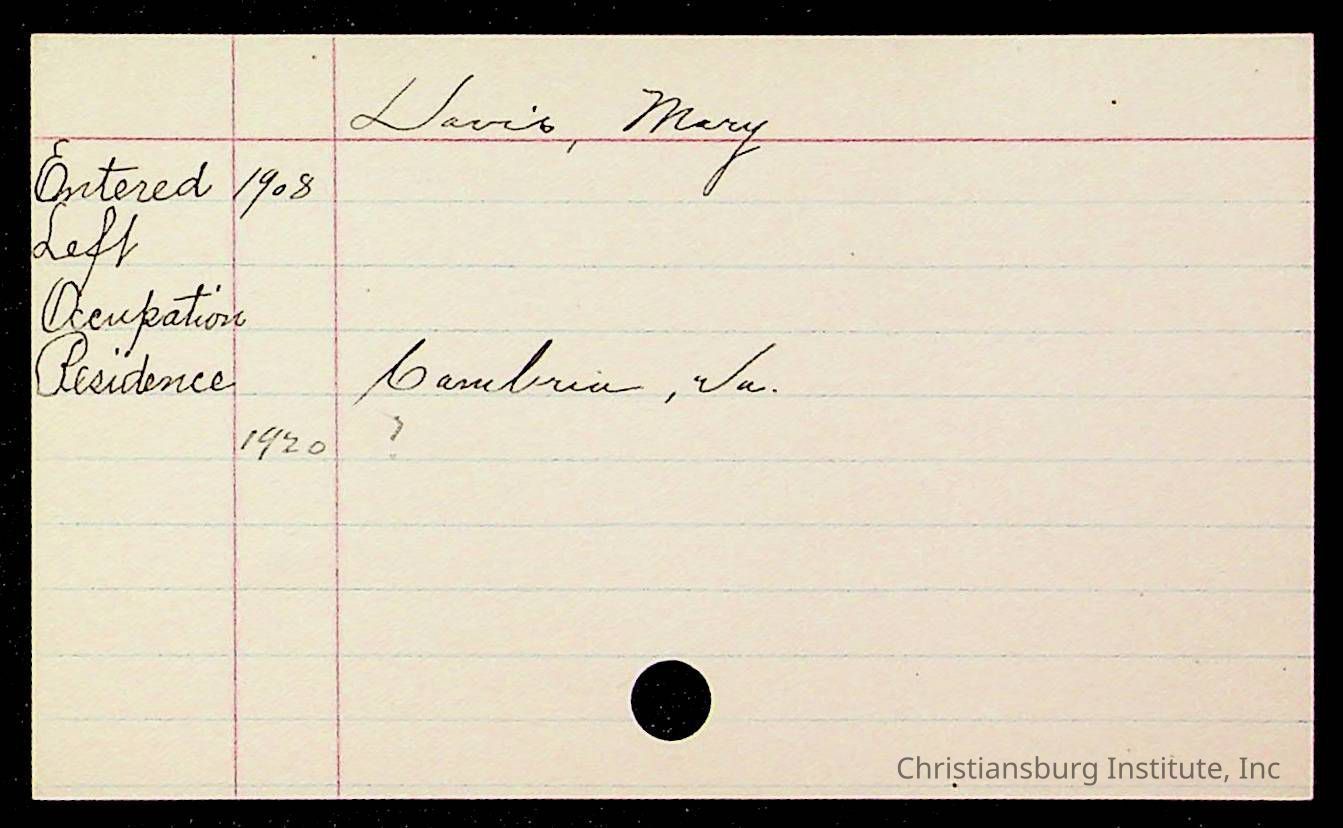 Davis, Mary
Entered 1908
Left
Occupation
Residence Cambria, Va.
1920 ?
Christiansburg Institute, Inc